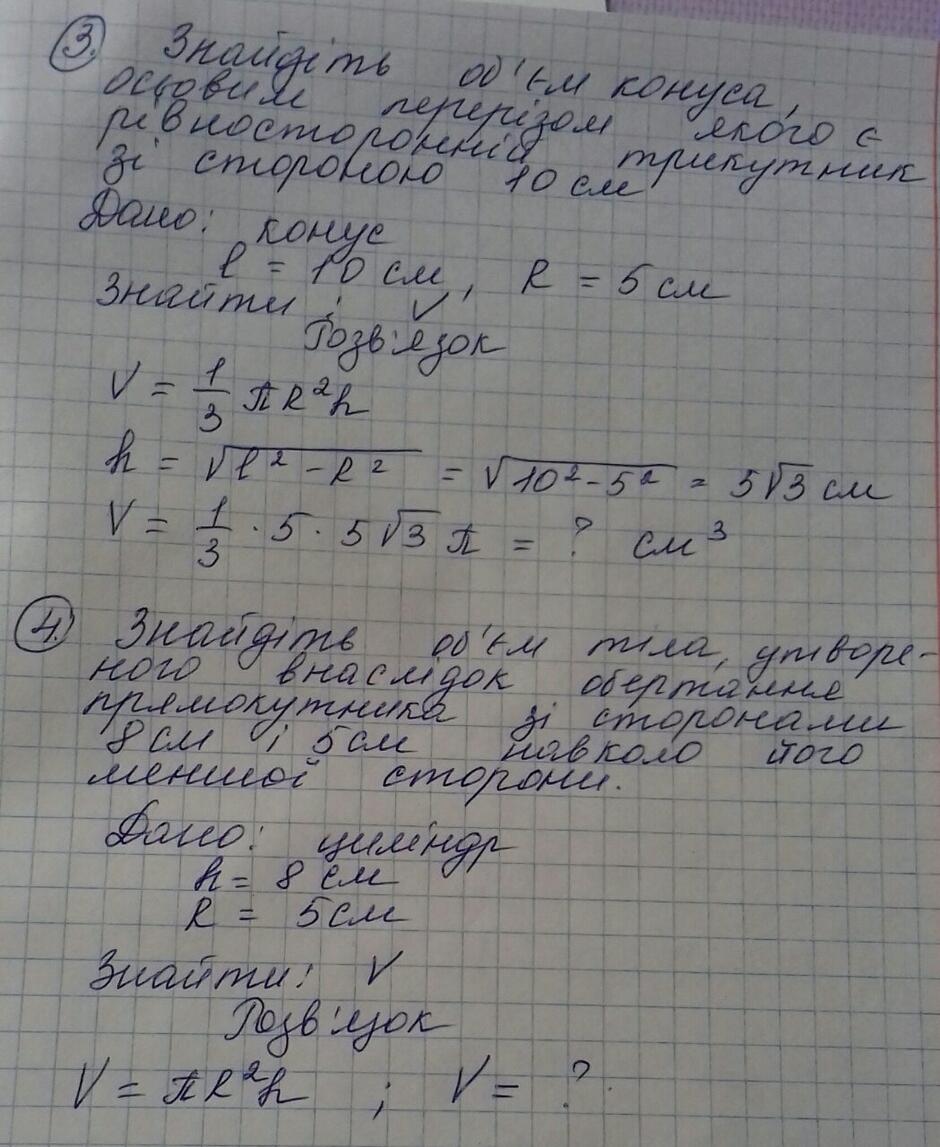 3. Знайдіть об'єм конуса,
осьовим перерізом якого є
рівносторонній трикутник
зі стороною 10 см
Дано: конус
l = 10 см, R = 5 см
Знайти: V
Розв'язок
V = 1/3 πR²h
h = √(l² - R²) = √(10² - 5²) = 5√3 см
V = 1/3 · 5 · 5√3 π = ? см³
4. Знайдіть об'єм тіла, утворе-
ного внаслідок обертання
прямокутника зі сторонами
8 см і 5 см навколо його
меншої сторони.
Дано: циліндр
h = 8 см
R = 5 см
Знайти: V
Розв'язок
V = πR²h ; V = ?